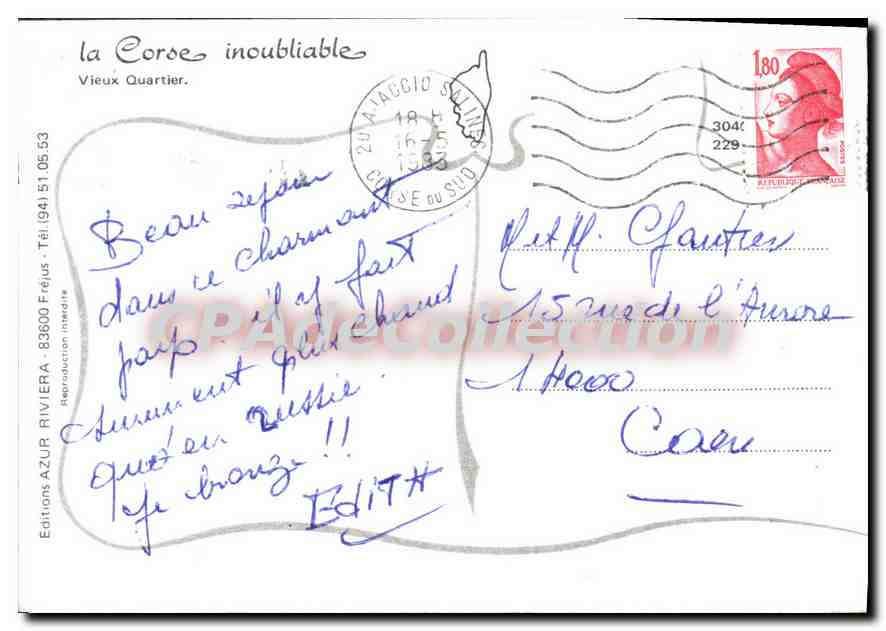 la Corse inoubliable
Vieux Quartier.
20 AJACCIO SALINES
18 H
15
1983
CORSE DU SUD
1,80
3040
229
POSTES
REPUBLIQUE FRANÇAISE
Beau séjour
dans ce charmant
pays. il y fait
surement plus chaud
qu'en Russie.
Je bronze !!
EdiTH
M et M. Gautier
15 rue de l'Aurore
14000
Caen
Editions AZUR RIVIERA - 83600 Fréjus - Tél. (94) 51.05.53
Reproduction interdite
CPAdeCollection